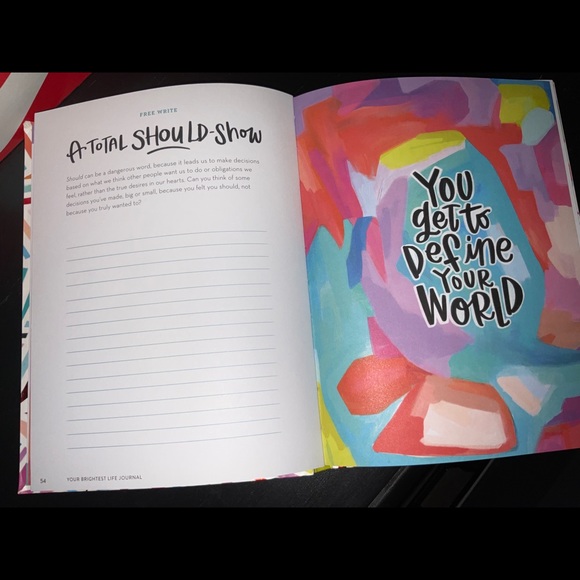 FREE WRITE
A TOTAL SHOULD-SHOW
Should can be a dangerous word, because it leads us to make decisions
based on what we think other people want us to do or obligations we
feel, rather than the true desires in our hearts. Can you think of some
decisions you've made, big or small, because you felt you should, not
because you truly wanted to?
54 YOUR BRIGHTEST LIFE JOURNAL
YOU
get to
DeFine
YOUR
WORLD